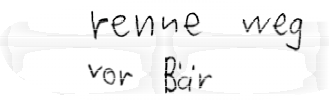 renne weg
vor Bär